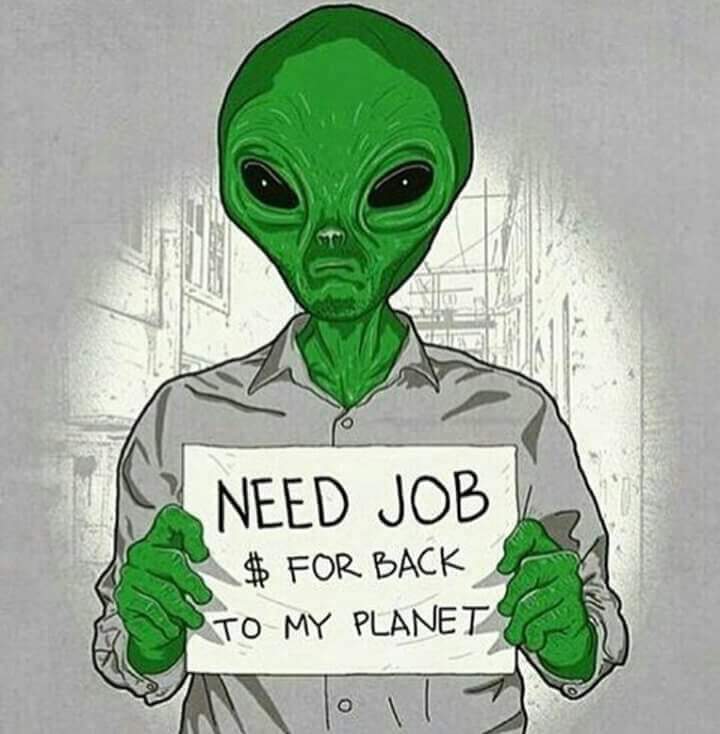 NEED JOB
$ FOR BACK
TO MY PLANET